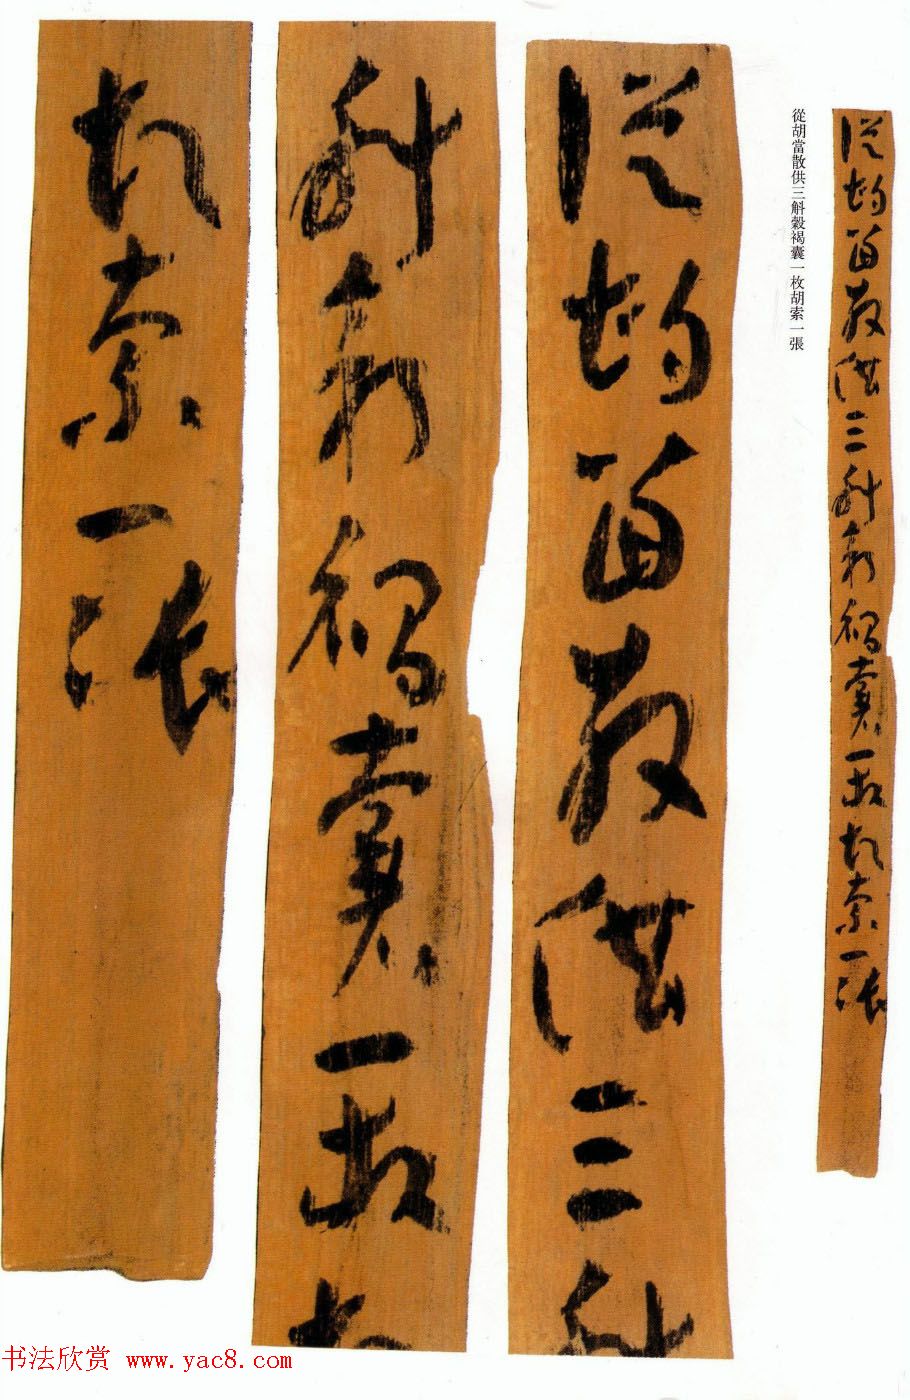 從胡當散供三斛穀褐囊一枚胡索一張
從胡當散供三斛穀褐囊一枚胡索一張
從胡當散供三斛
斛穀褐囊一枚胡
胡索一張
书法欣赏 www.yac8.com